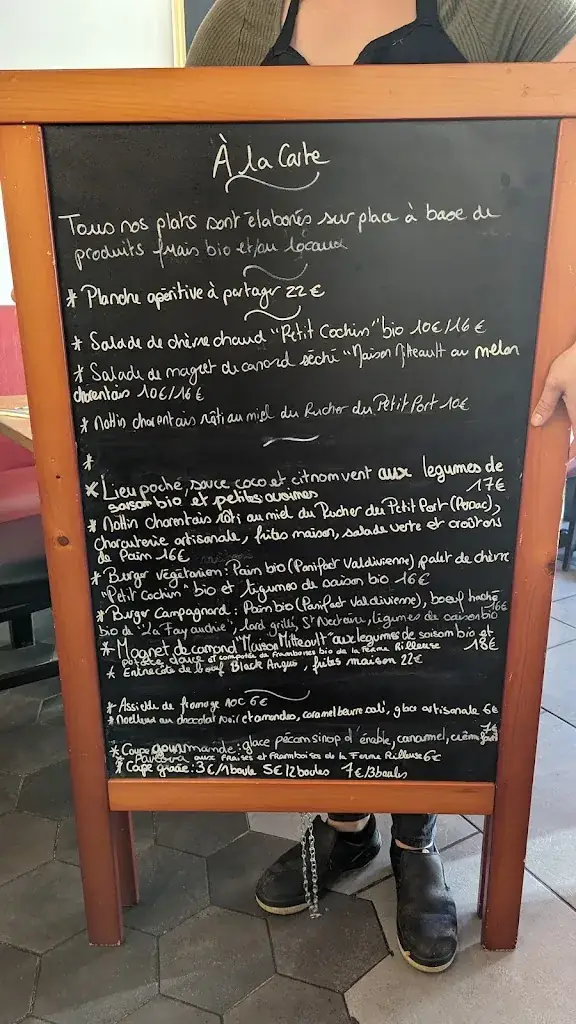 À la Carte
Tous nos plats sont élaborés sur place à base de
produits frais bio et/ou locaux
* Planche apéritive à partager 22€
* Salade de chèvre chaud "Petit Cochin" bio 10€/16€
* Salade de magret de canard séché "Maison Mitteault au melon
charentais 10€/16€
* Mottin charentais rôti au miel du Rucher du Petit Port 10€
*
* Lieu poché, sauce coco et citron vert aux legumes de
saison bio et petites avoines 17€
* Mottin charentais rôti au miel du Rucher du Petit Port
charcuterie artisanale, frites maison, salade verte et croûtons
de Pain 16€
* Burger végétarien: Pain bio (Panifact Valdivienne) palet de chèvre
"Petit Cochin" bio et légumes de saison bio 16€
* Burger Campagnard: Pain bio (Panifact Valdivienne), boeuf haché
bio de "La Fayaudrie", lard grillé, St Nectaire, légumes de saison bio 16€
* Magret de canard "Maison Mitteault" aux legumes de saison bio et
patate douce et compotée de framboises bio de la Ferme Rilleuse 18€
* Entrecôte de bœuf Black Angus, frites maison 22€
* Assiette de fromage AOC 6€
* Moelleux au chocolat noir et amandes, caramel beurre salé, glace artisanale 6€
* Coupe gourmande: glace pécan sirop d'érable, caramel, crème 7€
* Pavlova aux fraises et framboises de la Ferme Rilleuse 6€
* Coupe glacée: 3€/1 boule 5€/2 boules 7€/3 boules